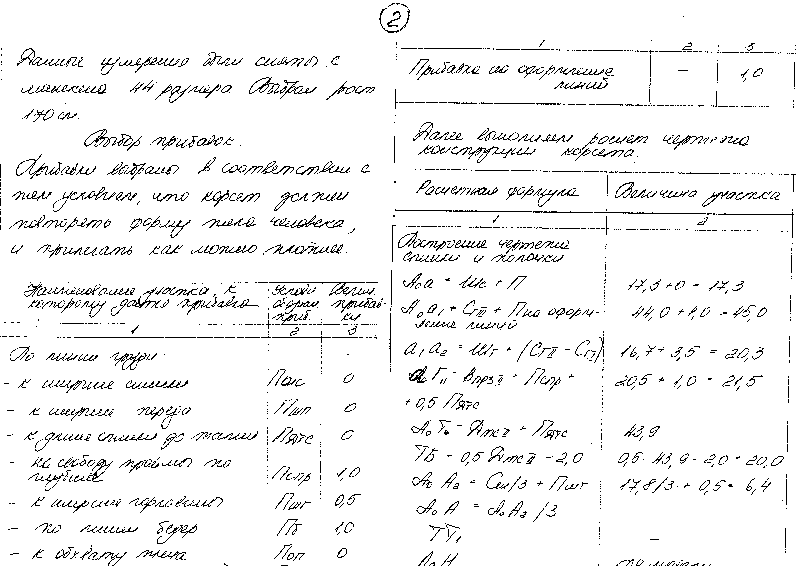 2
Данные измерения были сняты с
манекена 44 размера Выбран рост
170 см.
Выбор прибавок.
Прибавки выбраны в соответствии с
тем условием, что корсет должен
повторять форму тела человека,
и прилегать как можно плотнее.
Наименование участка, к которому дается прибавка | Услов. обозн. приб. | Велич. прибавки
1 | 2 | 3
По линии груди:
- к ширине спинки Пшс 0
- к ширине переда Пшп 0
- к длине спинки до талии Пдтс 0
- на свободу проймы по
глубине Пспр 1,0
- к ширине горловины Пшг 0,5
- по линии бедер Пб 1,0
- к обхвату плеча Поп 0
1 2 3
Прибавка на оформление
линий – 1,0
Далее выполняем расчет чертежа
конструкции корсета.
Расчетная формула | Величина участка
1 2
Построение чертежа
спинки и полочки
А₀а = Шс + П 17,3+0 = 17,3
А₀а₁ = СгII + Пна оформ-
ление линий 44,0 + 1,0 = 45,0
а₁а₂ = Шг + (СгII - СгI) 16,7+3,5 = 20,3
А₀Г₁ = ВпрзII + Пспр +
+ 0,5 Пдтс 20,5 + 1,0 = 21,5
А₀Т₀ = ДтсII + Пдтс 43,9
ТБ = 0,5 ДтсII - 2,0 0,5·43,9 - 2,0 = 20,0
А₀А₂ = Сш/3 + Пшг 17,8/3 + 0,5 = 6,4
А₀А = А₀А₂/3
ТТ₁ –
А₀Н